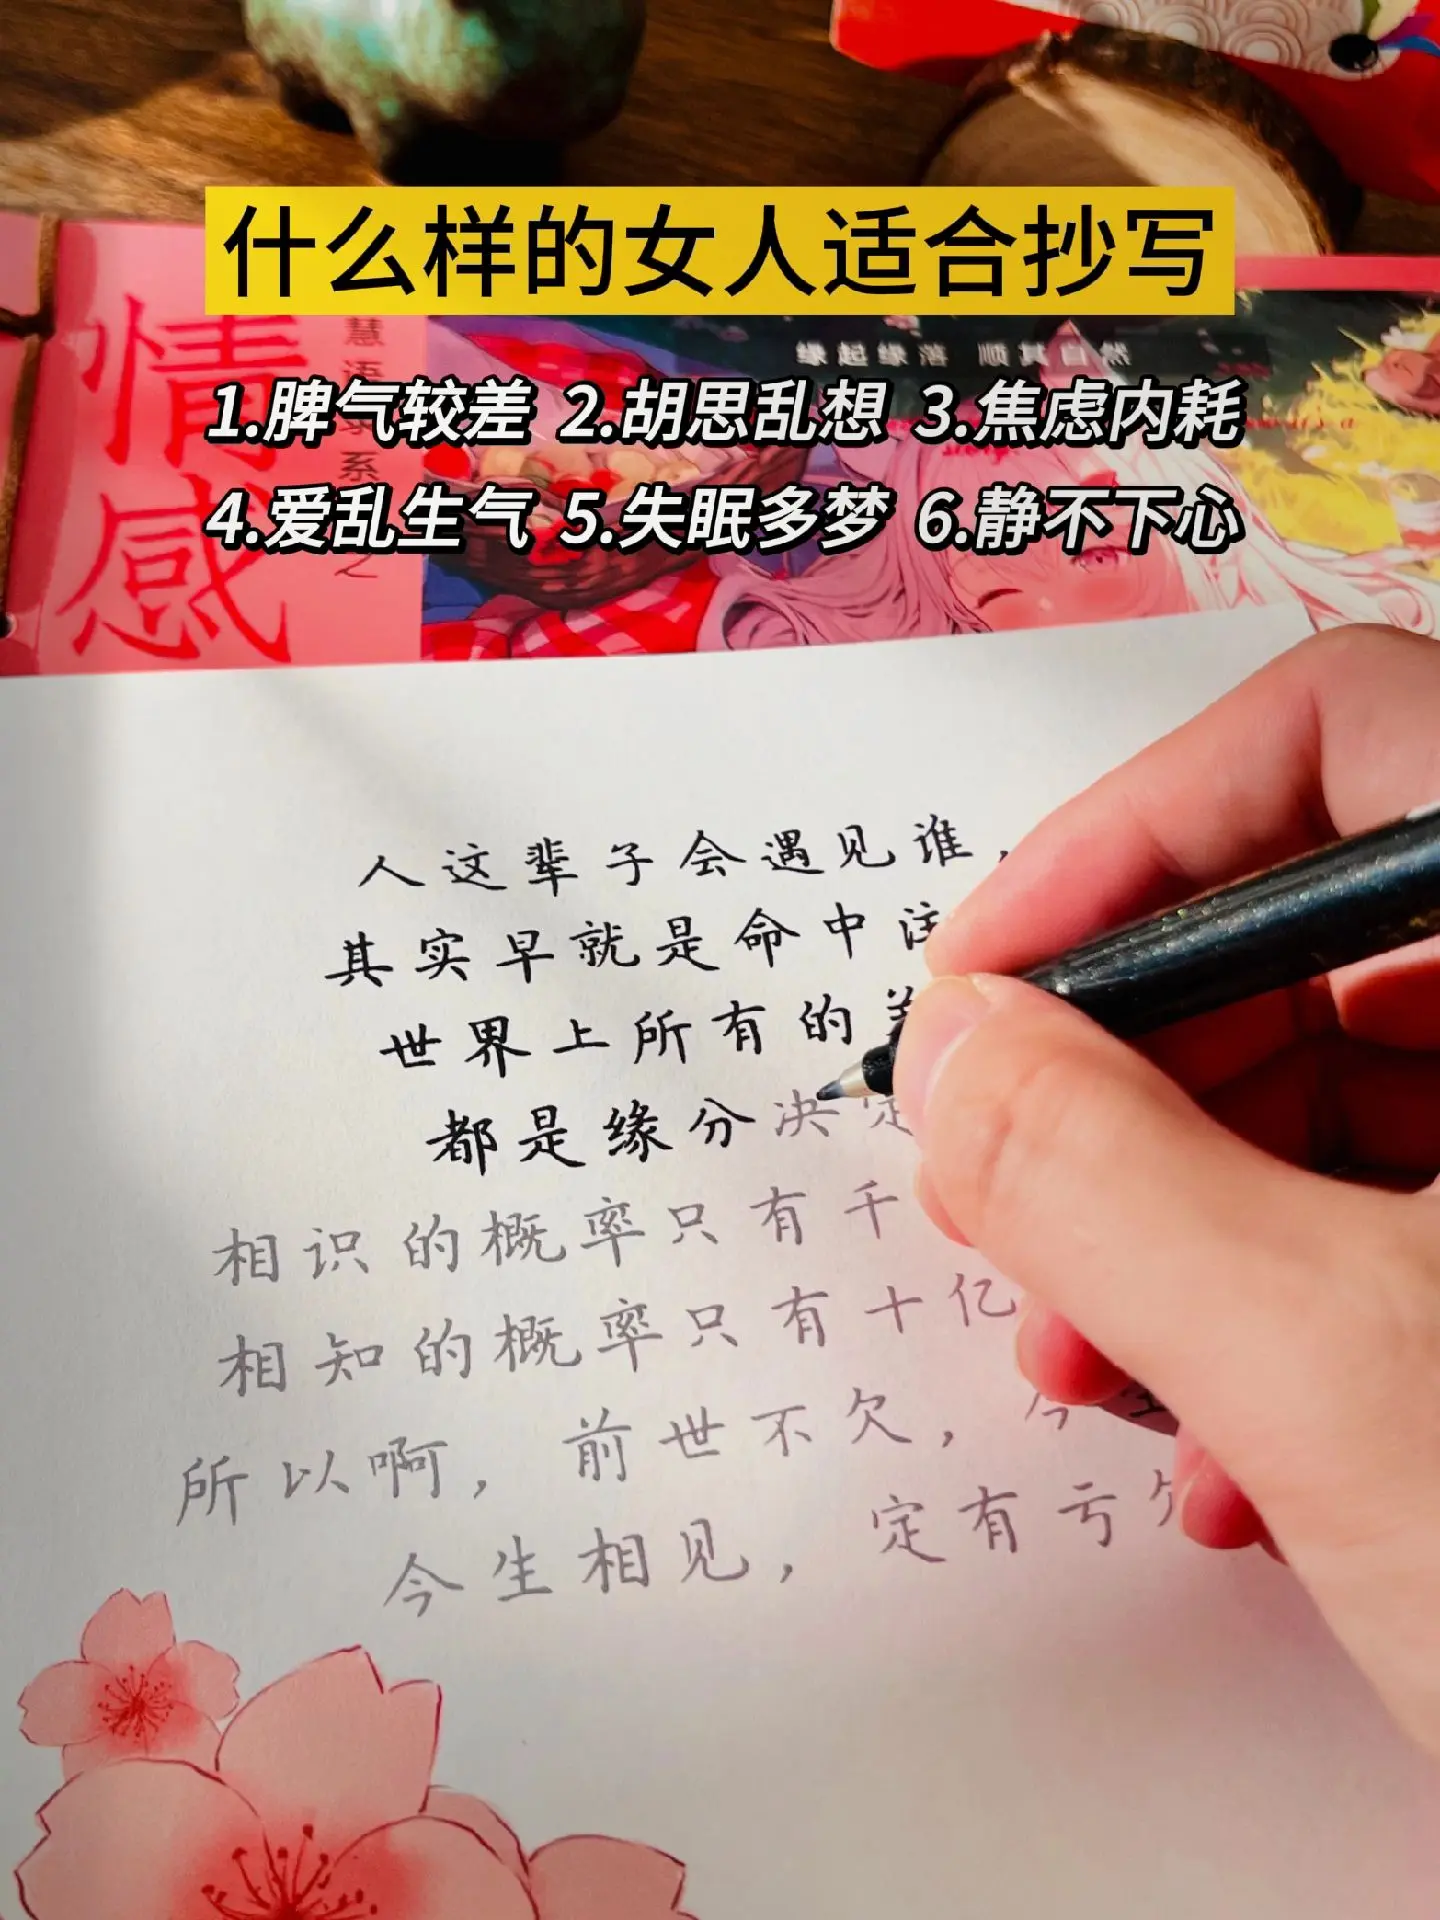 什么样的女人适合抄写
缘起缘落 顺其自然
1.脾气较差 2.胡思乱想 3.焦虑内耗
4.爱乱生气 5.失眠多梦 6.静不下心
情感
慧语
系
人这辈子会遇见谁，
其实早就是命中注
世界上所有的
都是缘分决定
相识的概率只有千
相知的概率只有十亿
所以啊，前世不欠，今生
今生相见，定有亏欠